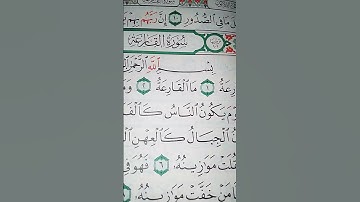 مَا فِي ٱلصُّدُورِ ١٠ إِنَّ رَبَّهُم بِهِمْ
سُورَةُ القَارِعَةِ
بِسْمِ ٱللَّهِ ٱلرَّحْمَٰنِ
رِعَةُ ١ مَا ٱلْقَارِعَةُ ٢ وَمَ
مَ يَكُونُ ٱلنَّاسُ كَٱلْفَ
ٱلْجِبَالُ كَٱلْعِهْنِ ٱلْ
قُلَتْ مَوَٰزِينُهُۥ ٦ فَهُوَ فِي
مَنْ خَفَّتْ مَوَٰزِينُهُۥ